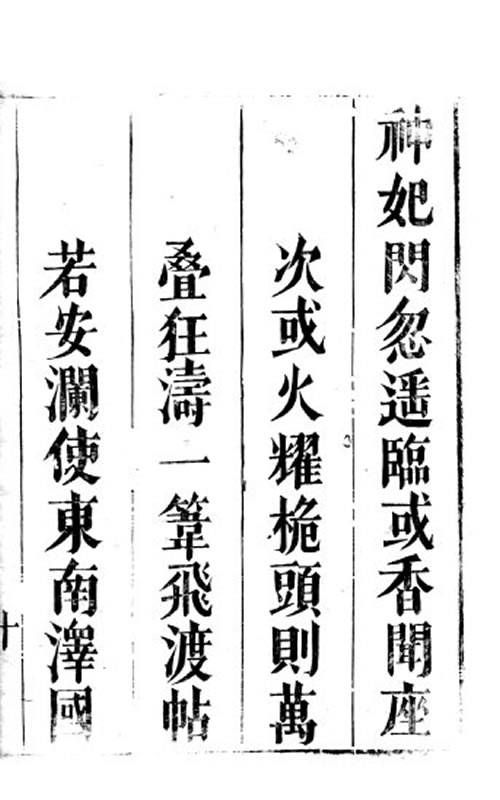 神妃閃忽遥臨或香聞座
次或火耀桅頭則萬
叠狂濤一葦飛渡帖
若安瀾使東南澤國
十